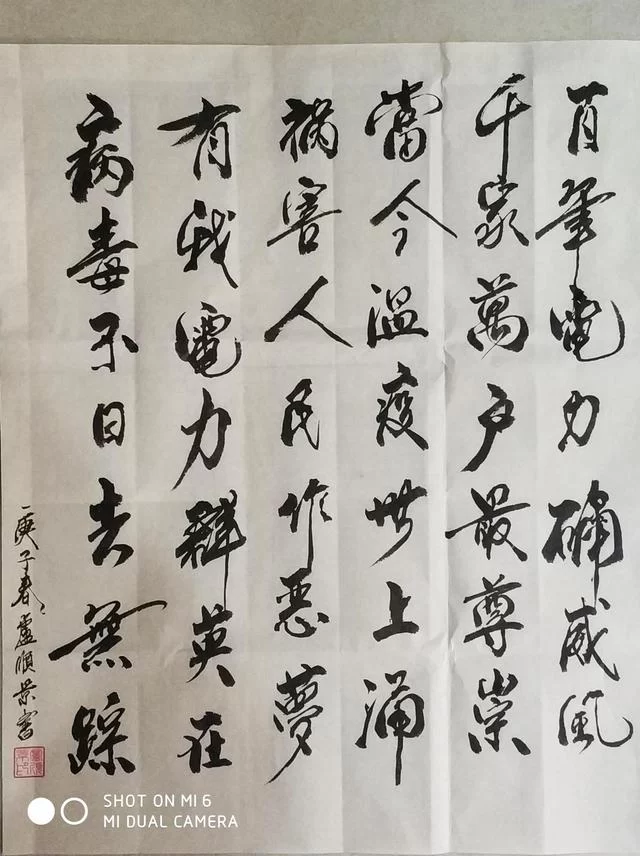 百年電力確威風
千家萬户最尊崇
當今溫疫世上涌
禍害人民作惡夢
有我電力群英在
病毒不日去無踪
庚子春盧順景書
SHOT ON MI 6
MI DUAL CAMERA